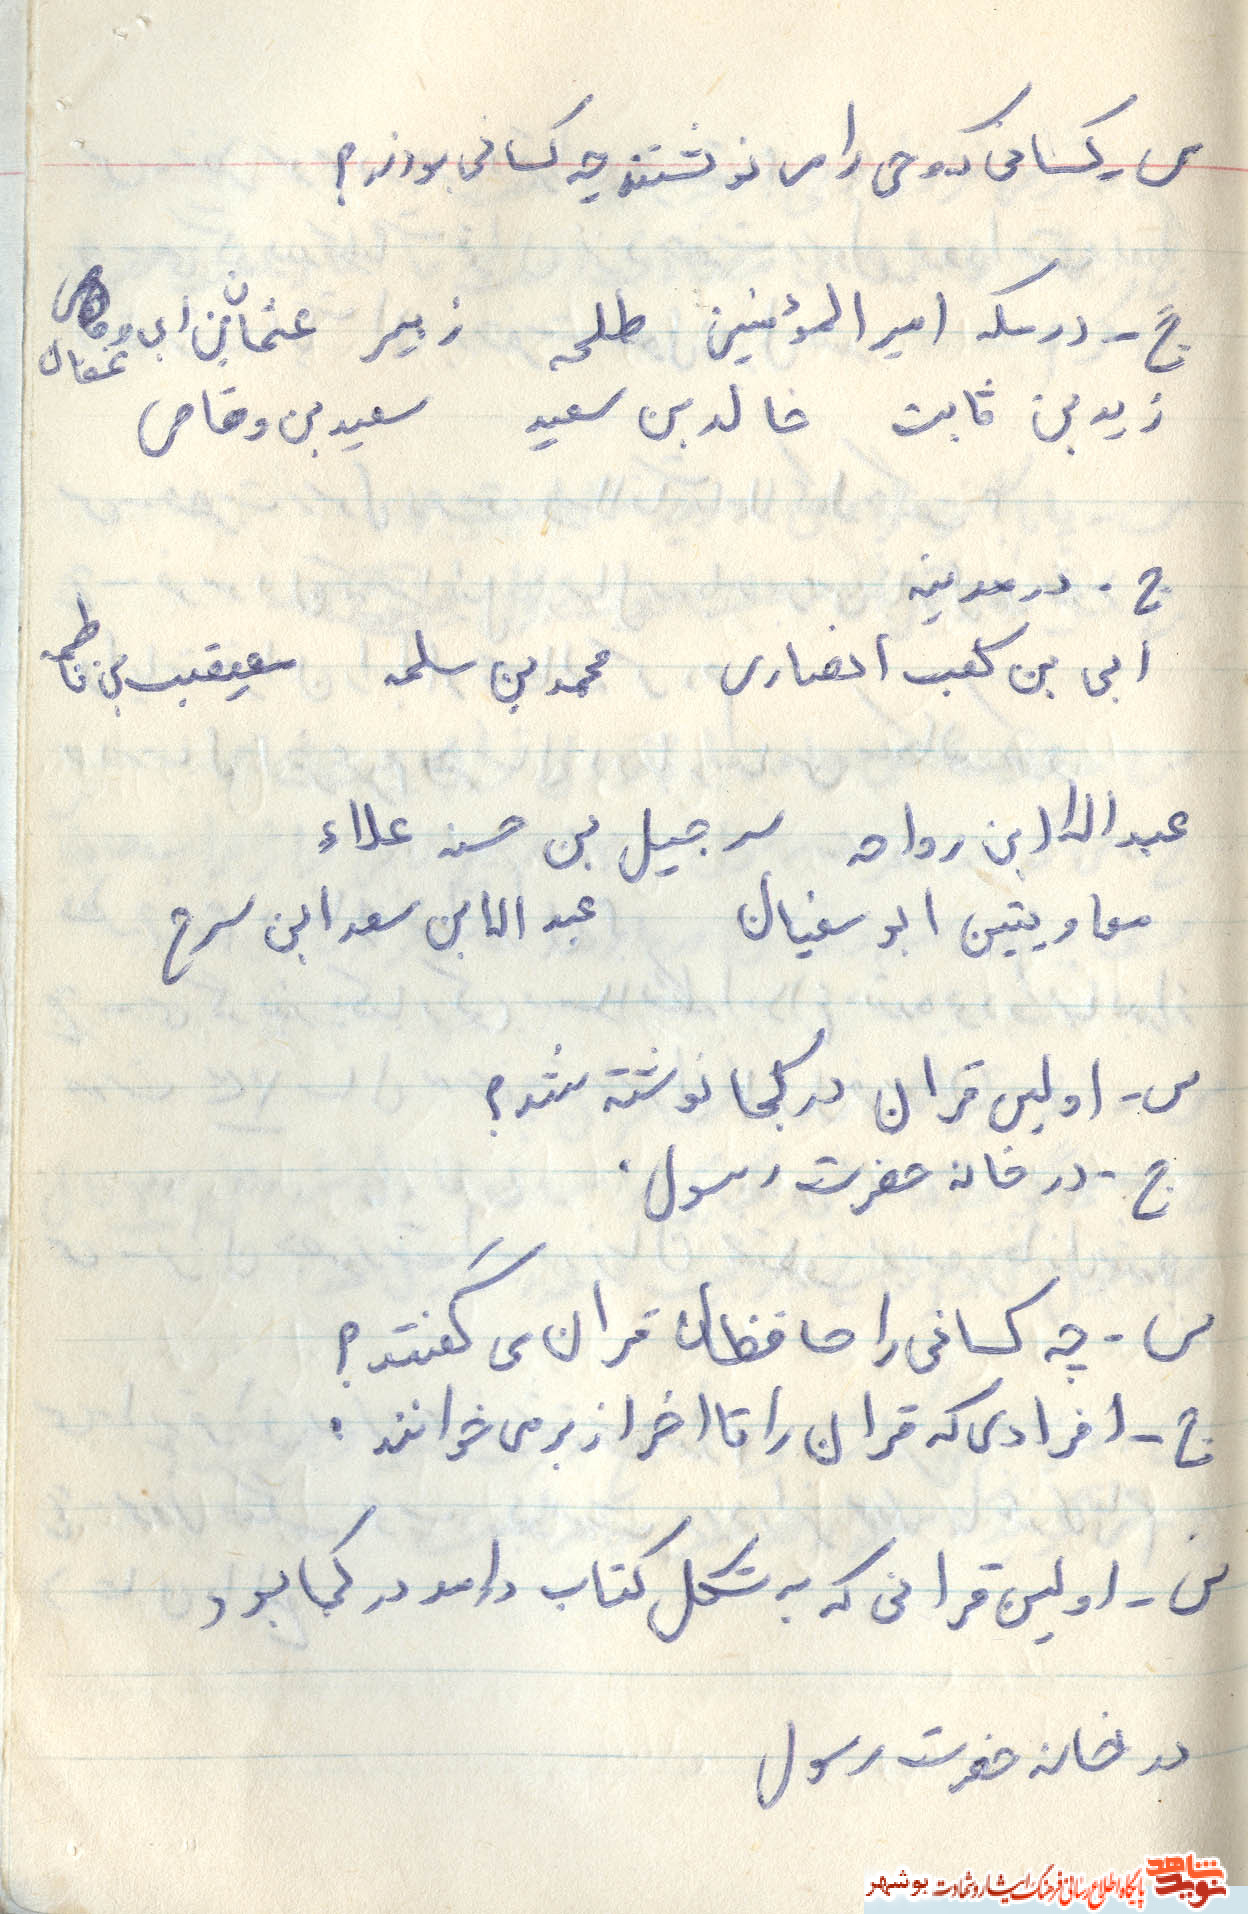 س - کسانی که وحی را می نوشتند چه کسانی بودند؟
ج - در مکه امیرالمؤمنین طلحه زبیر عثمان بن ابی وقاص
عفان
زید بن ثابت خالد بن سعید سعید بن وقاص
ج - در مدینه
ابی بن کعب انصاری محمد بن سلمه معیقب بن فاطمه
عبدالله ابن رواحه سرجیل بن حسنه علاء
معاویتبن ابوسفیان عبدالله ابن سعد ابن سرح
س - اولین قران در کجا نوشته شد؟
ج - در خانه حضرت رسول.
س - چه کسانی را حافظان قران می گفتند؟
ج - افرادی که قران را تا اخر از بر می خوانند.
س - اولین قرانی که به شکل کتاب درامد در کجا بود
در خانه حضرت رسول
شاهد نوید
پایگاه اطلاع رسانی فرهنگ ایثار و شهادت بوشهر